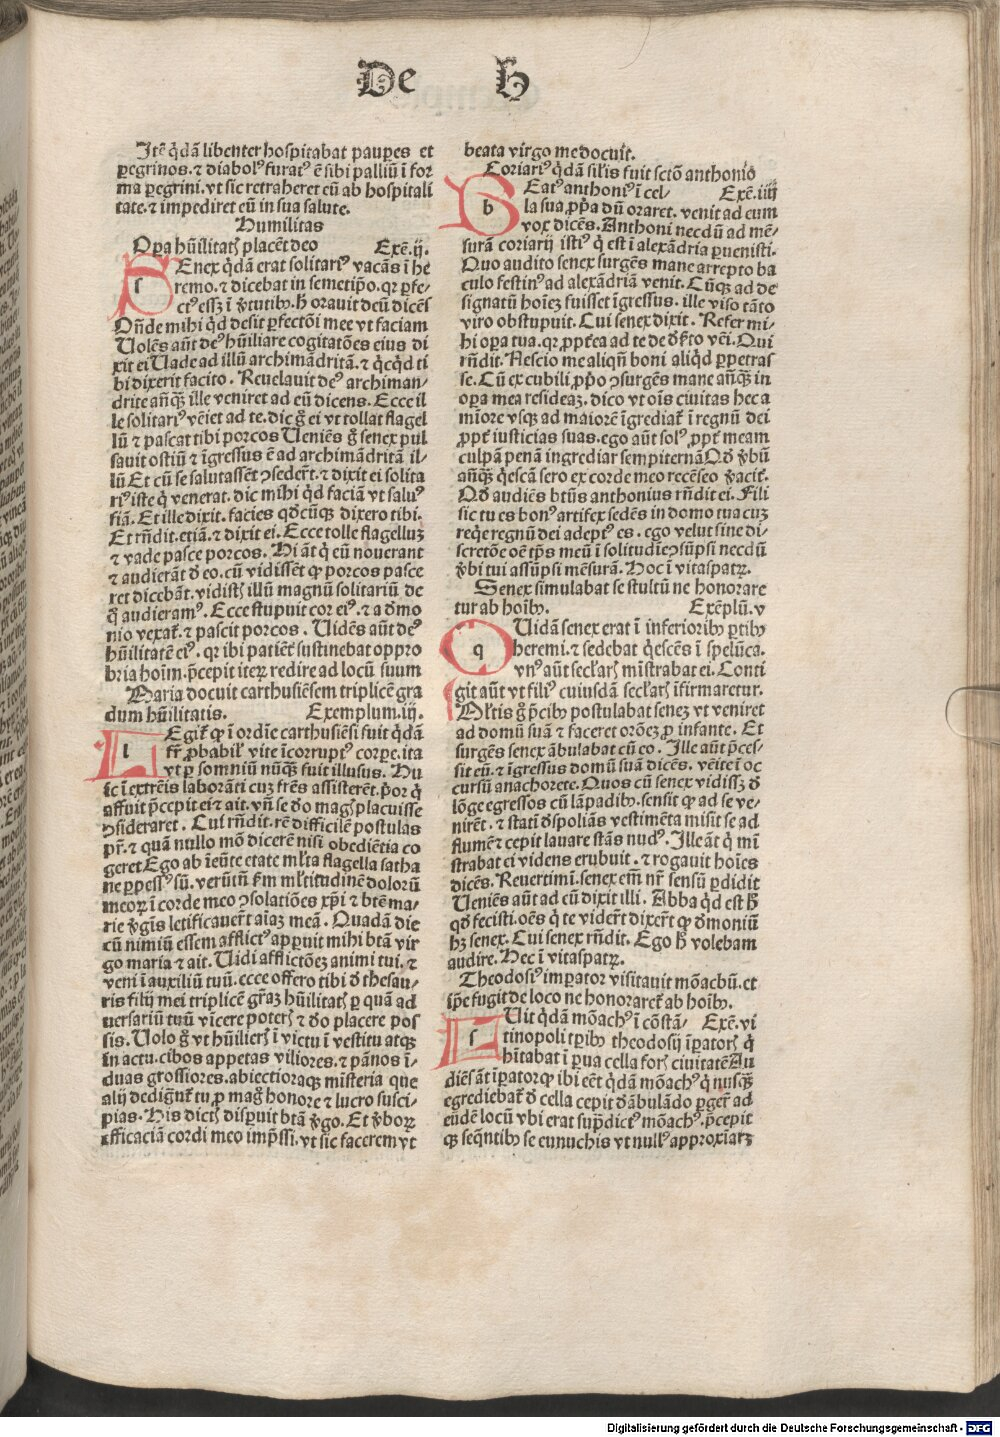 De h
Itē q̇dā libenter hospitabat paupes et
pegrinos. ⁊ diabolꝰ furatꝰ ē sibi palliū ī for
ma pegrini. vt sic retraheret eū ab hospitali
tate. ⁊ impediret eū in sua salute.
Humilitas
Opa hūilitatꝭ placēt deo Exē. ij.
Senex q̇dā erat solitariꝰ vacās ī he
remo. ⁊ dicebat in semetip̄o. qꝛ pfe-
ctꝰ essꝫ ī v̓tutibꝫ. h̄ orauit deū dicēs
Oñde mihi q̇d desit pfectōi mee vt faciam
Uolēs aūt deꝰ hūiliare cogitatōes eius di
xit ei Uade ad illū archimādritā. ⁊ qͥcq̇d ti
bi dixerit facito. Reuelauit deꝰ archiman-
drite añqꝫ ille veniret ad eū dicens. Ecce il
le solitariꝰ vēiet ad te. dic g̊ ei vt tollat flagel
lū ⁊ pascat tibi porcos Ueniēs g̊ senex pul
sauit ostiū ⁊ īgressus ē ad archimādritā il-
lū Et cū se salutassēt ꝯsedert̄. ⁊ dixit ei solita
riꝰ iste q̇ venerat. dic mihi q̇d faciā vt saluꝰ
fiā. Et ille dixit. facies qd̄cūqꝫ dixero tibi.
Et rn̄dit. etiā. ⁊ dixit ei. Ecce tolle flagellū
⁊ vade pasce porcos. Hi āt q̇ eū nouerant
⁊ audierāt d̓ eo. cū vidissēt ꝙ porcos pasce
ret dicebāt. vidistꝭ illū magnū solitariū de
q̊ audieramꝰ. Ecce stupuit cor eiꝰ. ⁊ a d̓mo
nio vexat̄. ⁊ pascit porcos. Uidēs aūt deꝰ
hūilitatē eiꝰ. qꝛ ibi patiēt̓ sustinebat oppro
bria hoīm. p̄cepit iteꝝ redire ad locū suum
Maria docuit carthusiēsem triplicē gra
dum hūilitatis. Exemplum. iij.
Legit̄ ꝙ ī ordīe carthusiēsi fuit q̇dā
fr̄ ꝓbabilꝭ vite īcorruptꝰ corpe. ita
vt p somniū nūqꝫ fuit illusus. Hu
ic ī extrēis laborāti cuꝫ frēs assisterēt. p̓or q̇
affuit p̄cepit ei ⁊ ait. vn̄ se d̓o magꝭ placuisse
ꝯsideraret. Cui rn̄dit. rē difficilē postulas
pr̄. ⁊ quā nullo mō dicerē nisi obediētia co
geret Ego ab īeūte etate ml̓ta flagella satha
ne ppessꝰ sū. verūtn̄ s̓m ml̓titudinē dolorū
meoꝝ ī corde meo ꝯsolatiōes xp̄i ⁊ btē ma-
rie v̓gīs letificauer̄t aīaꝫ meā. Quadā die
cū nimiū essem afflictꝰ apparuit mihi btā vir
go maria ⁊ ait. Uidi afflictōeꝫ animi tui. ⁊
veni ī auxiliū tuū. ecce offero tibi d̓ thesau-
ris filij mei triplicē gr̄aꝫ hūilitatꝭ p quā ad
uersariū tuū vīcere poterꝭ ⁊ d̓o placere pos
sis. Uolo g̊ vt hūilierꝭ ī victu ī vestitu atqꝫ
in actu. cibos appetas viliores. ⁊ pānos ī-
duas grossiores. abiectioraqꝫ mīsteria que
alij dedign̄t̄ tu ꝓ mag̊ honore ⁊ lucro susci-
pias. His dictꝭ dispuit btā v̓go. Et v̓boꝝ
efficaciā cordi meo imp̄ssi. vt sic facerem vt
beata virgo me docuit.
Coriariꝰ q̇dā sil̓is fuit sctō anthonio
Beatꝰ anthoniꝰ ī cel- Exē. iiij
la sua ꝓp̓a dū oraret. venit ad eum
vox dicēs. Anthoni necdū ad mē-
surā coriarij istiꝰ q̇ est ī alexādria puenisti.
Quo audito senex surgēs mane arrepto ba
culo festinꝰ ad alexādriā venit. Cūqꝫ ad de
signatū hoīeꝫ fuisset īgressus. ille viso tāto
viro obstupuit. Cui senex dixit. Refer mi-
hi opa tua. qꝛ ꝓpt̓ea ad te de d̓s̓to vēi. Qui
rn̄dit. Nescio me aliqn̄ boni aliq̇d ppetras
se. Cū ex cubili ꝓp̓o ꝯsurgēs mane añqꝫ in
opa mea resideaꝫ. dico vt oīs ciuitas hec a
mīore vsqꝫ ad maiorē īgrediat̄ ī regnū dei
ꝓpt̓ iusticias suas. ego aūt solꝰ ꝓpt̓ meam
culpā penā ingrediar sempiternā Qd̓ v̓bū
añqꝫ q̇escā sero ex corde meo recēseo v̓acit̓.
Qd̓ audiēs btūs anthonius rn̄dit ei. Fili
sic tu es bonꝰ artifex sedēs in domo tua cuꝫ
req̇e regnū dei adeptꝰ es. ego velut sine di-
scretōe oē tp̄s meū ī solitudīe ꝯsūpsi necdū
v̓bi tui assūpsi mēsurā. Hoc ī vitaspatꝝ.
Senex simulabat se stultū ne honorare
tur ab hoībꝫ. Exēplū. v
Quidā senex erat ī inferioribꝫ ptibꝫ
heremi. ⁊ sedebat q̇escēs ī spelūca.
vnꝰ aūt secl̓arꝭ mīstrabat ei. Conti
git aūt vt filiꝰ cuiusdā secl̓arꝭ īfirmaretur.
Ml̓tis g̊ p̄cibꝫ postulabat seneꝫ vt veniret
ad domū suā ⁊ faceret orōeꝫ ꝓ infante. Et
surgēs senex ābulabat cū eo. Ille aūt p̄ces-
sit eū. ⁊ īgressus domū suā dicēs. vēite ī oc
cursū anachorete. Quos cū senex vidissꝫ d̓
lōge egressos cū lāpadibꝫ. sensit ꝙ ad se ve-
nirēt. ⁊ statī d̓spoliās vestimēta misit se ad
flumē ⁊ cepit lauare stās nudꝰ. Ille āt q̇ mī
strabat ei videns erubuit. ⁊ rogauit hoīes
dicēs. Reuertimī. senex em̄ nr̄ sensū pdidit
Ueniēs aūt ad eū dixit illi. Abba q̇d est h̄
qd̓ fecisti. oēs q̇ te vider̄t dixer̄t ꝙ d̓moniū
hꝫ senex. Cui senex rn̄dit. Ego h̄ volebam
audire. Hec ī vitaspatꝝ.
Theodosiꝰ impator visitauit mōachū. et
ip̄e fugit de loco ne honoraret̄ ab hoībꝫ.
Fuit q̇dā mōachꝰ ī cōstā- Exē. vi
tinopoli tp̄ibꝫ theodosij īpatorꝭ q̇
hītabat ī pua cella forꝭ ciuitatē Au
diēs āt īpator ꝙ ibi eēt q̇dā mōachꝰ q̇ nusqꝫ
egrediebat̄ d̓ cella cepit d̓ābulādo pger̄ ad
eūdē locū vbi erat sup̄dictꝰ mōachꝰ. p̄cepit
ꝙ seq̄ntibꝫ se eunuchis vt nullꝰ approxīaꝫ
Digitalisierung gefördert durch die Deutsche Forschungsgemeinschaft - DFG